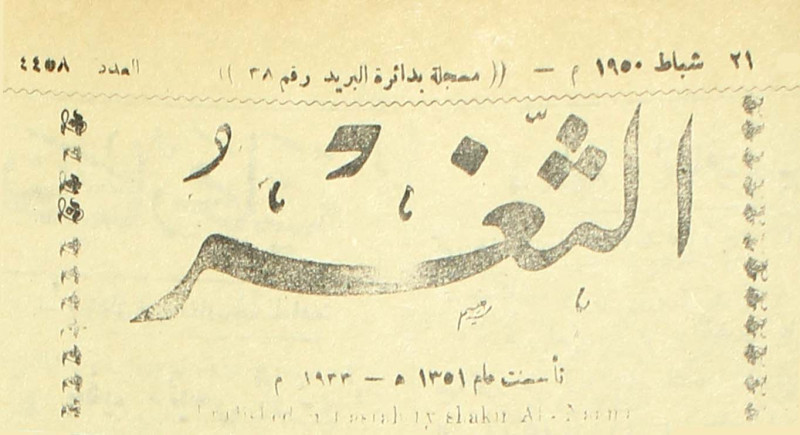 ٢١ شباط ١٩٥٠ م — (( مسجلة بدائرة البريد رقم ٣٨ )) العدد ٤٤٥٨
الثَّغْرُ
تأسست عام ١٣٥١ ه — ١٩٣٣ م